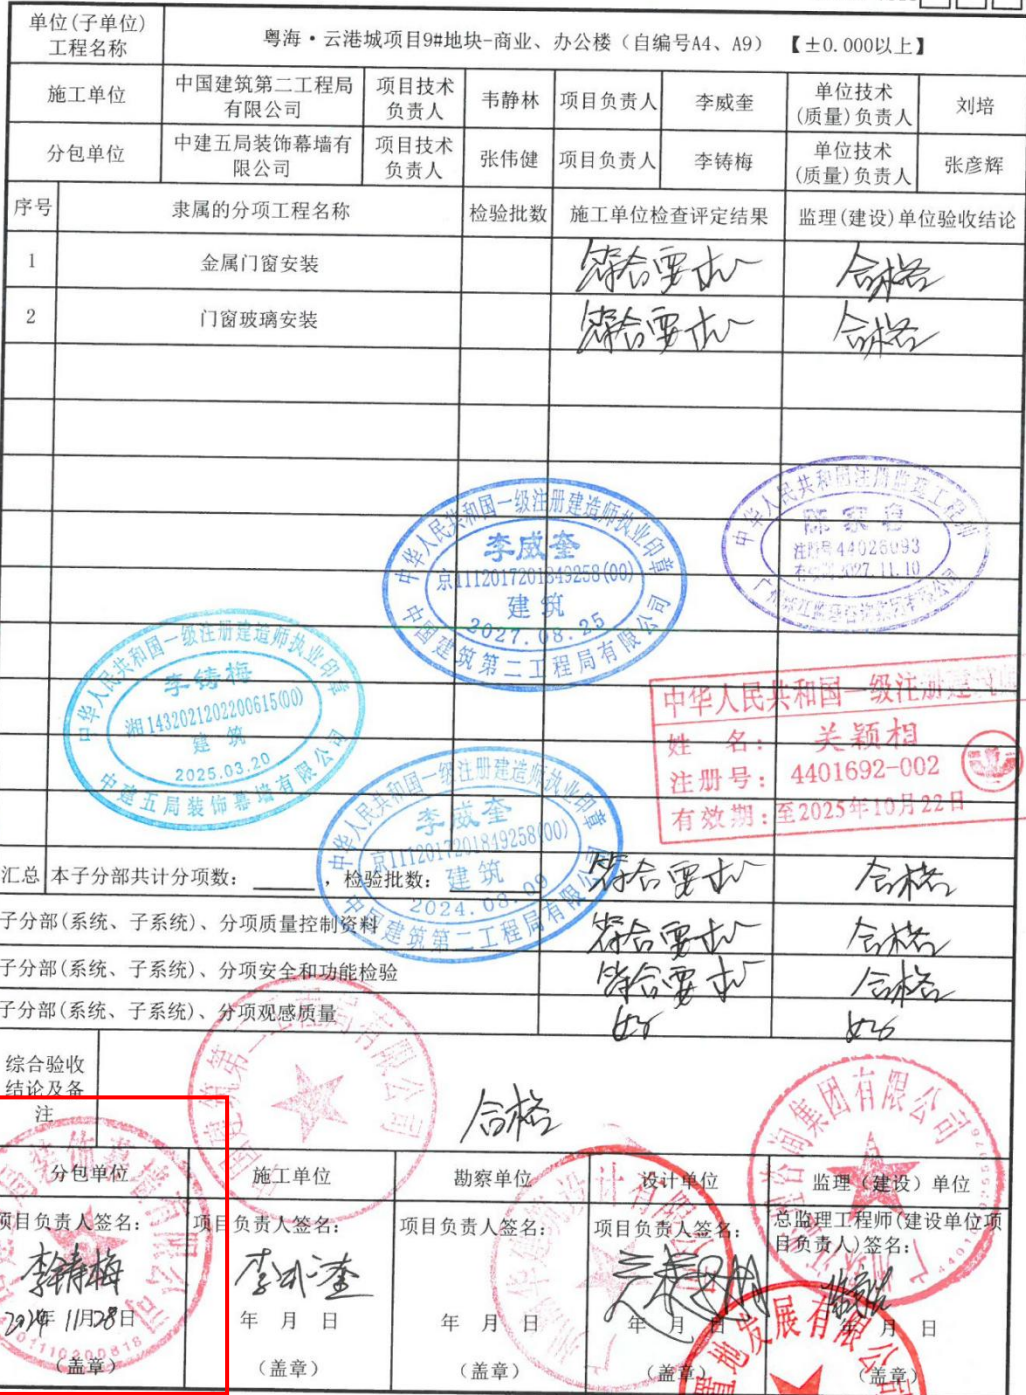 单位(子单位)
工程名称
粤海·云港城项目9#地块-商业、办公楼（自编号A4、A9）【±0.000以上】
施工单位
中国建筑第二工程局
有限公司
项目技术
负责人
韦静林
项目负责人
李威奎
单位技术
(质量)负责人
刘培
分包单位
中建五局装饰幕墙有
限公司
项目技术
负责人
张伟健
项目负责人
李铸梅
单位技术
(质量)负责人
张彦辉
序号
隶属的分项工程名称
检验批数
施工单位检查评定结果
监理(建设)单位验收结论
1
金属门窗安装
符合要求
合格
2
门窗玻璃安装
符合要求
合格
中华人民共和国一级注册建造师执业印章
李威奎
京1112017201849258(00)
建筑
2027.08.25
中国建筑第二工程局有限公司
中华人民共和国注册监理工程师
注册号44026093
有效期2027.11.10
中华人民共和国一级注册建造师执业印章
李铸梅
湘1432021202200615(00)
建筑
2025.03.20
中建五局装饰幕墙有限公司
中华人民共和国一级注册建筑
姓 名：关颖相
注册号：4401692-002
有效期：至2025年10月22日
中华人民共和国一级注册建造师执业印章
李威奎
京1112017201849258(00)
建筑
2024.08.09
中国建筑第二工程局有限公司
汇总
本子分部共计分项数： ，检验批数：
符合要求
合格
子分部(系统、子系统)、分项质量控制资料
符合要求
合格
子分部(系统、子系统)、分项安全和功能检验
符合要求
合格
子分部(系统、子系统)、分项观感质量
好
好
综合验收
结论及备
注
合格
分包单位
施工单位
勘察单位
设计单位
监理（建设）单位
项目负责人签名：
项目负责人签名：
项目负责人签名：
项目负责人签名：
总监理工程师(建设单位项
目负责人)签名：
李铸梅
李威奎
2024年11月28日
年 月 日
年 月 日
年 月 日
年 月 日
(盖章)
(盖章)
(盖章)
(盖章)
(盖章)